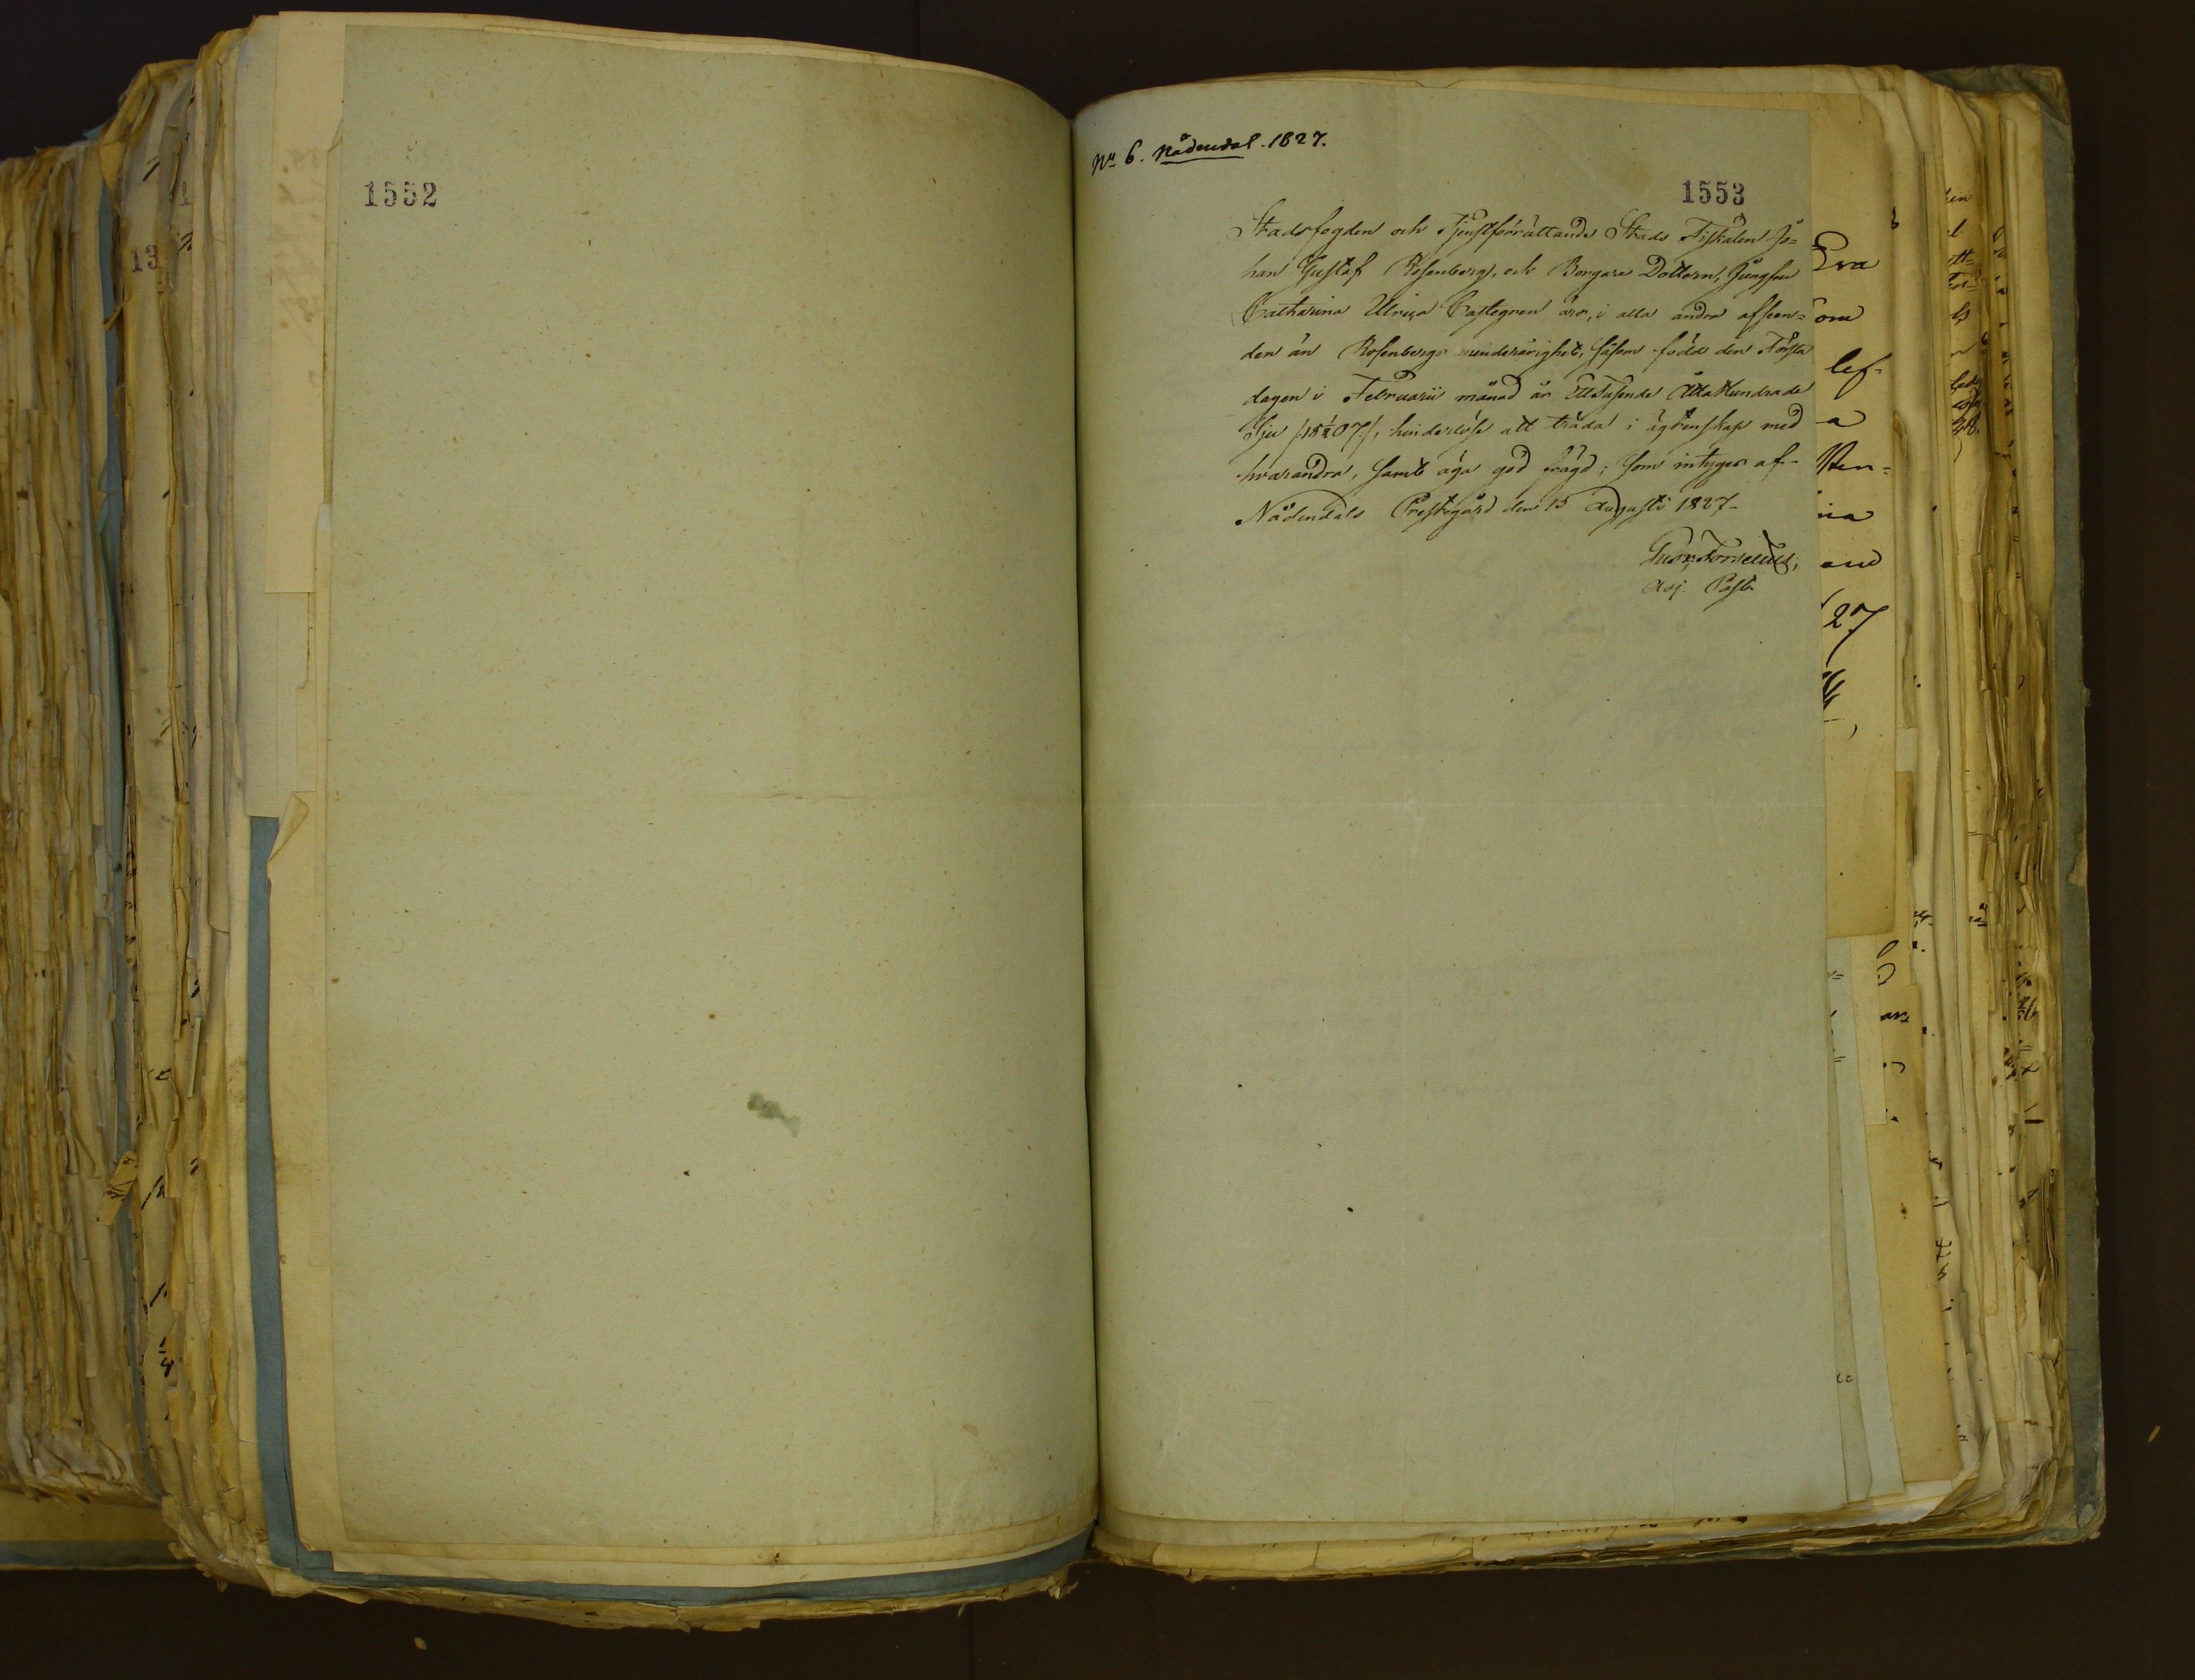 1552
No 6. Nådendal. 1827.
1553
Stadsfogden och Tjenstförrättande Stads Fiskalen Jo=
han Gustaf Rosenberg, och Borgare Dottern, Jungfru
Catharina Ulrica Castegren äro, i alla andra afseen=
den än Rosenbergs minderårighet, såsom född den Första
dagen i Februarii månad år EttTusende ÅttaHundrade
Sju /:18 1/2 07:/, hinderlöse att träda i ägtenskap med
hvarandra, samt äga god frägd; som intygas af-
Nådendals Prestegård den 15 Augusti 1827-
Adj. Past.
Eva
om
lef=
a
na
and
27
13